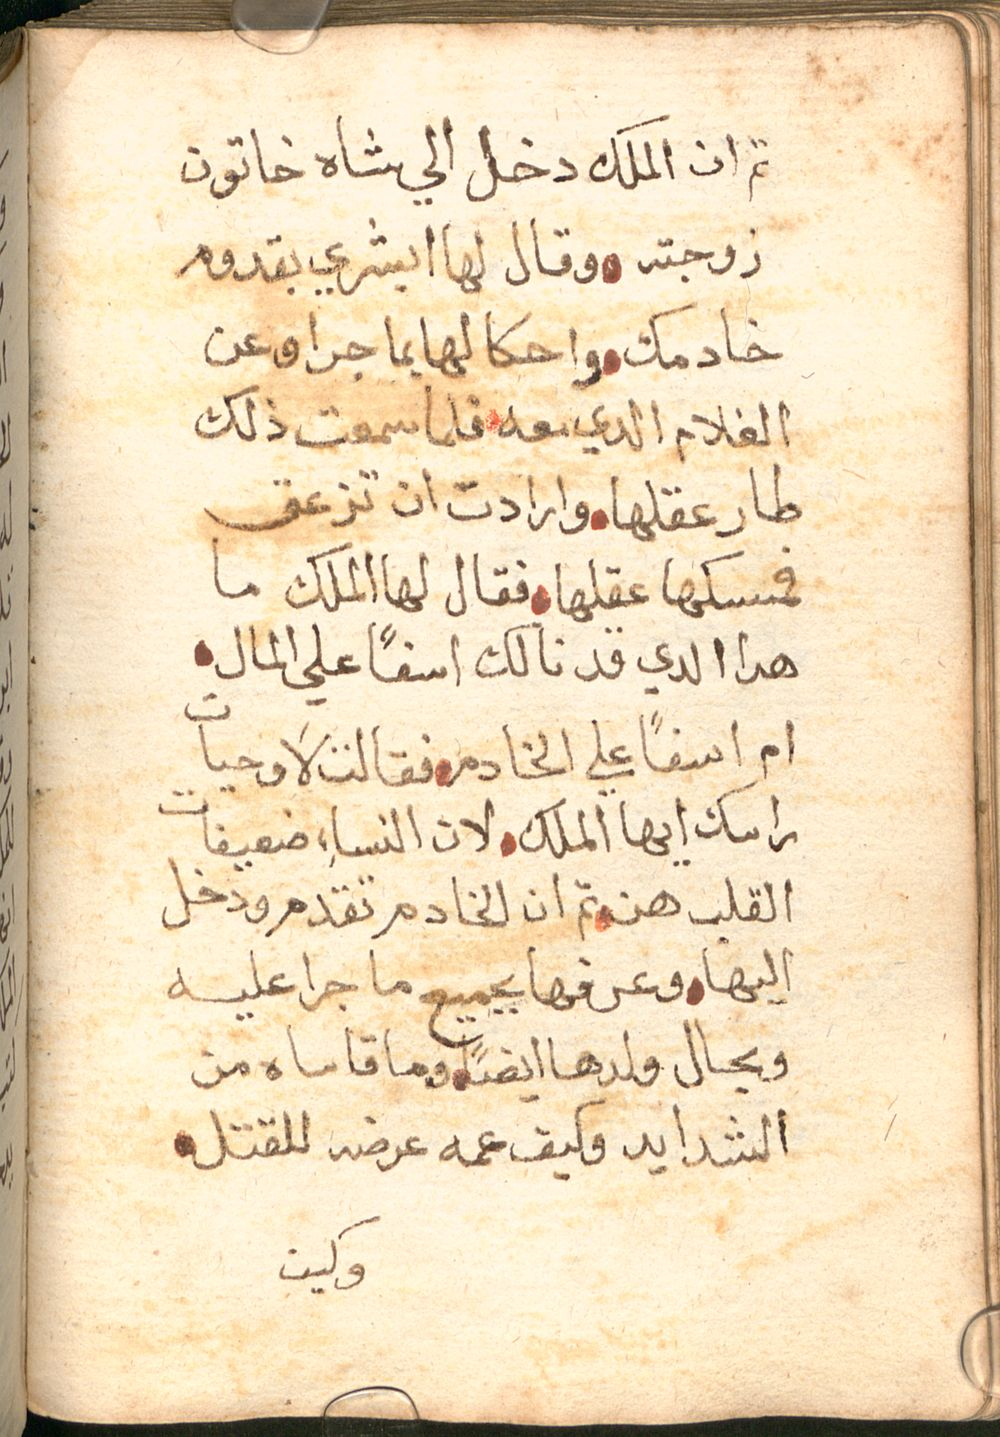 ثم ان الملك دخل الي شاه خاتون
زوجته وقال لها ابشري بقدوم
خادمك واحكا لها بما جرا وعن
الغلام الدي معه فلما سمعت ذلك
طار عقلها وارادت ان تزعق
فمسكها عقلها فقال لها الملك ما
هدا الدي قد نالك اسفًا علي المال
ام اسفًا علي الخادم فقالت لا وحيات
راسك ايها الملك لان النساء ضعيفات
القلب هن ثم ان الخادم تقدم ودخل
اليها وعرفها بجميع ما جرا عليه
وبحال ولدها ايضًا وما قاساه من
الشدايد وكيف عمه عرضه للقتل
وكيف